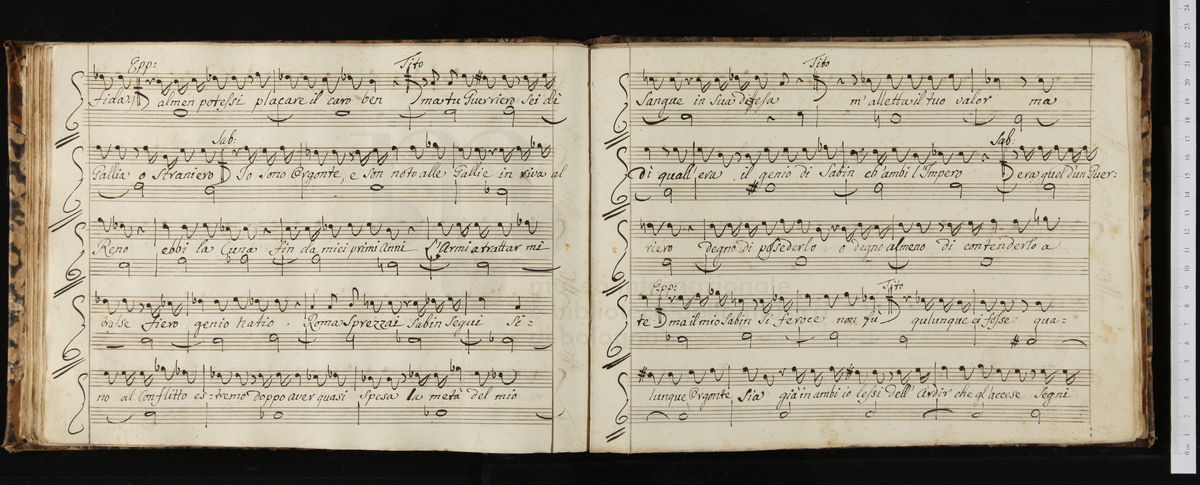 Epp: Tito
fidar, almen potessi placare il caro ben ma tu Guerriero Sei di
Sab:
Gallia o Straniero Io sono Orgonte, e son noto alle Gallie in riva al
Reno ebbi la Cuna fin da miei primi anni L'Armi a trattar mi
valse fiero genio natio. Roma sprezzai Sabin seguii Si-
no al Conflitto es-tremo doppo aver quasi Spesa la metà del mio
Tito
Sangue in sua difesa m'alletta il tuo valor ma
Sab:
Di qual'era il genio di Sabin ch'ambì l'Impero era quel d'un Guer:
riero degno di possederlo o degno almeno di contenderlo a
Epp: Tito
te ma il mio Sabin sì feroce non fù qulunque ei fosse qua-
lunque Orgonte Sia già in ambi io lessi dell'Ardir che gl'accese Segni